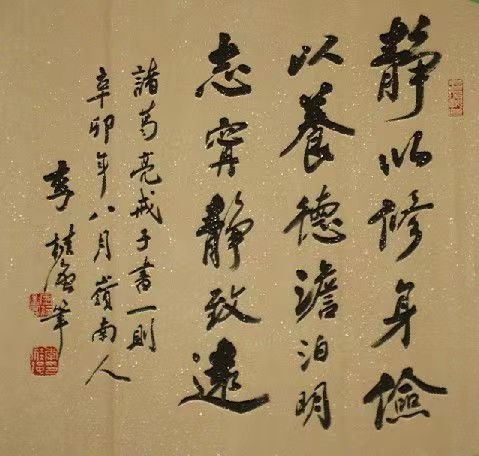 靜以修身儉
以養德澹泊明
志寧靜致遠
諸葛亮戒子書一則
辛卯年八月嶺南人
李桂筆